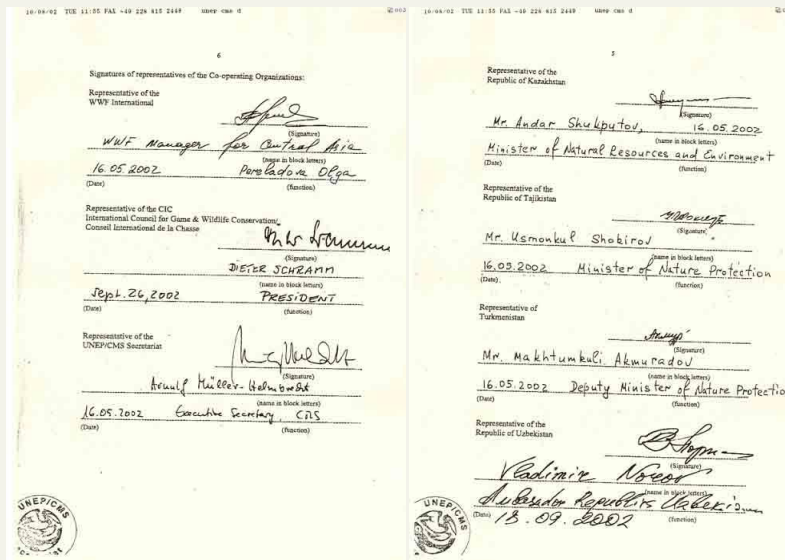 10/04/02 TUE 11:55 FAX +49 228 815 2449 unep cms d
6
Signatures of representatives of the Co-operating Organizations:
Representative of the
WWF International
(Signature)
WWF Manager for Central Asia
(name in block letters)
16.05.2002 Pereladova Olga
(Date) (function)
Representative of the CIC
International Council for Game & Wildlife Conservation/
Conseil International de la Chasse
(Signature)
DIETER SCHRAMM
(name in block letters)
Sept. 26, 2002 PRESIDENT
(Date) (function)
Representative of the
UNEP/CMS Secretariat
(Signature)
Arnulf Müller-Helmbrecht
(name in block letters)
16.05.2002 Executive Secretary, CMS
(Date) (function)
UNEP/CMS
10/04/02 TUE 11:55 FAX +49 228 815 2449 unep cms d
5
Representative of the
Republic of Kazakhstan
(Signature)
Mr. Andar Shukputov, 16.05.2002
(name in block letters)
Minister of Natural Resources and Environment
(Date) (function)
Representative of the
Republic of Tajikistan
(Signature)
Mr. Usmonkul Shokirov
(name in block letters)
16.05.2002 Minister of Nature Protection
(Date) (function)
Representative of
Turkmenistan
(Signature)
Mr. Makhtumkuli Akmuradov
(name in block letters)
16.05.2002 Deputy Minister of Nature Protectio
(Date) (function)
Representative of the
Republic of Uzbekistan
(Signature)
Vladimir Norov
(name in block letters)
Ambasador Republiks Uzbekis
(Date) 13.09.2002 (function)
UNEP/CMS